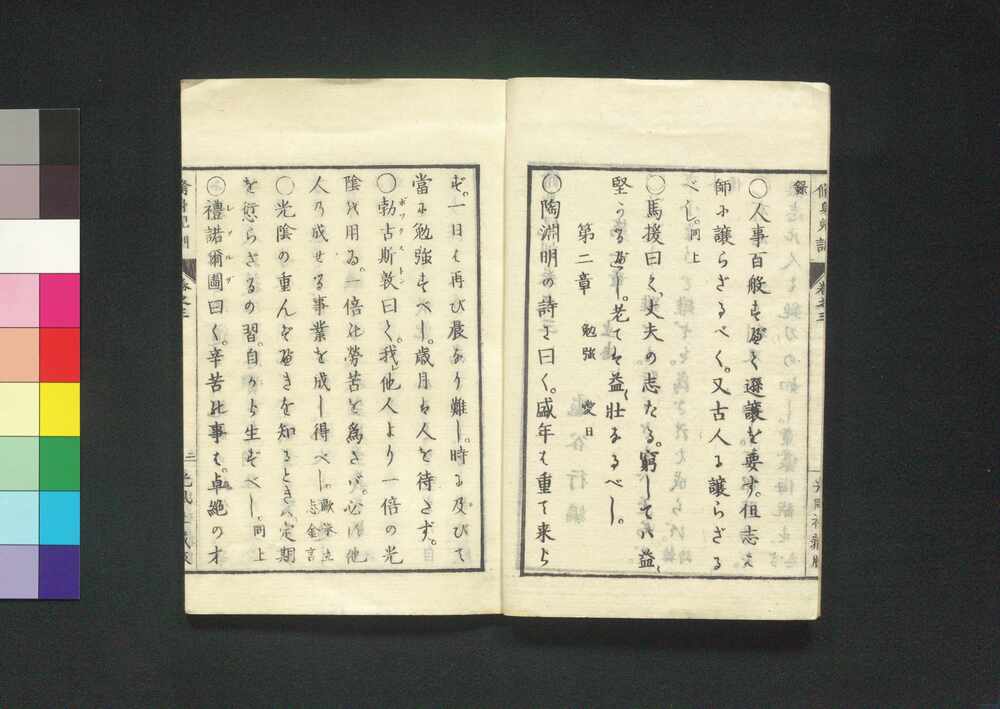 修身児訓 巻之三
錄
○人事百般すべて遜讓を要す。但志は
師に讓らざるべく。又古人に讓らざる
べし。同上
○馬援曰く、丈夫の志たる。窮しては益〻
堅かるべし。老ては益〻壯なるべし。
第二章 勉強 愛日
○陶淵明の詩に曰く。盛年は重て来ら
ず。一日は再び晨なり難し。時に及びて
當に勉強すべし。歲月は人を待たず。
○勃古斯敦曰く。我他人より一倍の光
ボックストン
陰を用ゐ。一倍の勞苦を爲さば。必ず他
人の成せる事業を成し得べし。
○光陰の重んずべきを知るときは。定期
を愆らざるの習。自から生ずべし。同上
○禮諾爾圖曰く。辛苦の事は。卓絶の才
レノルヅ
二